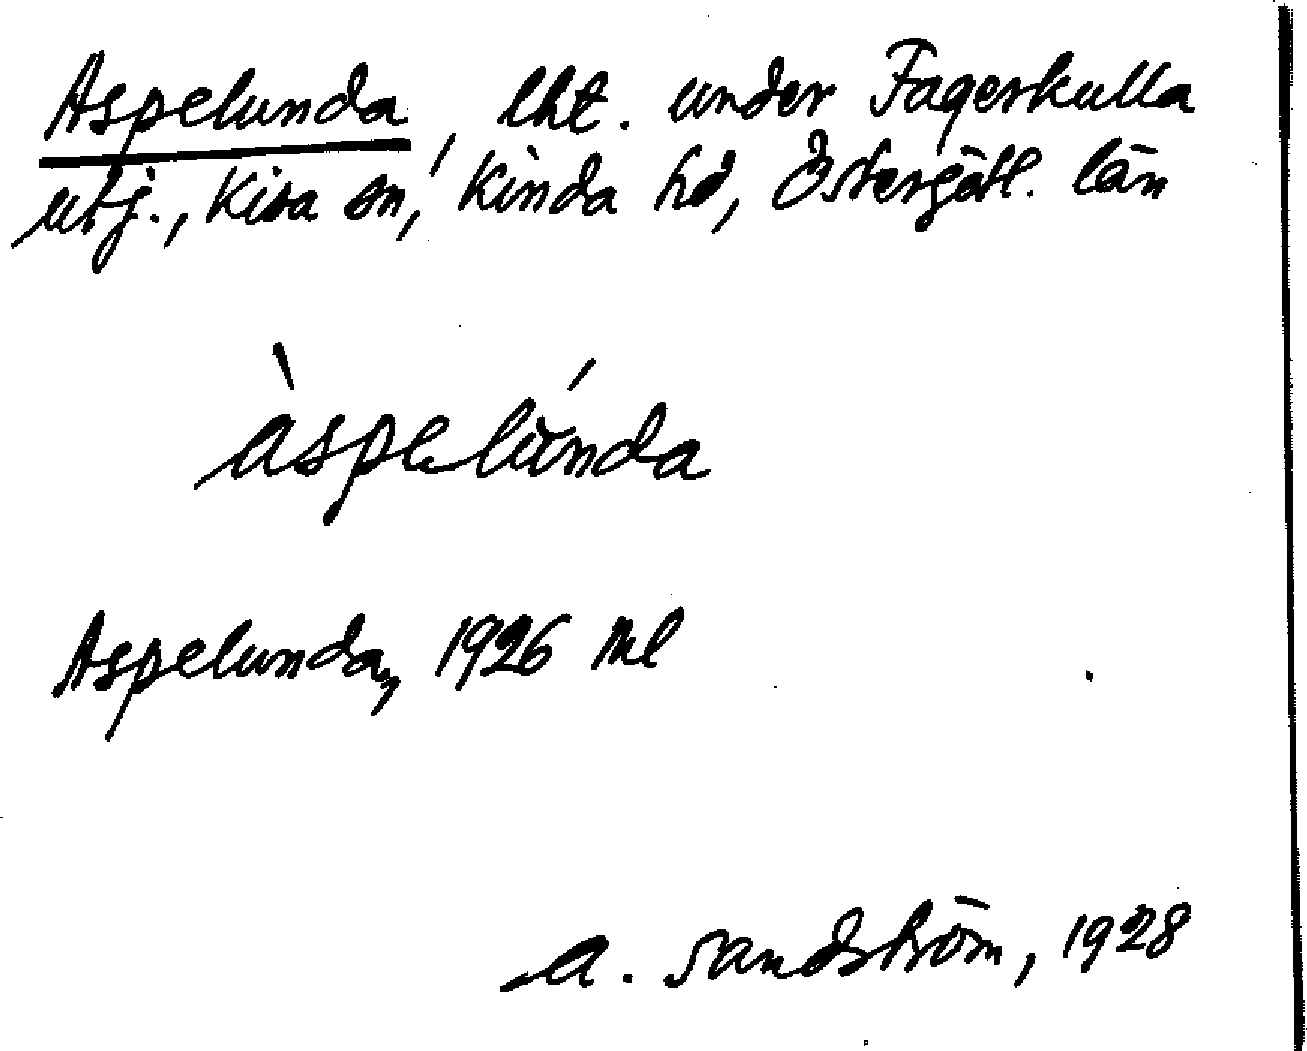 Aspelunda, lht. under Fagerkulla
utj., Kisa sn, Kinda hd, Östergötl. län
àspelúnda
Aspelunda, 1926 Ml
A. Sandström, 1928